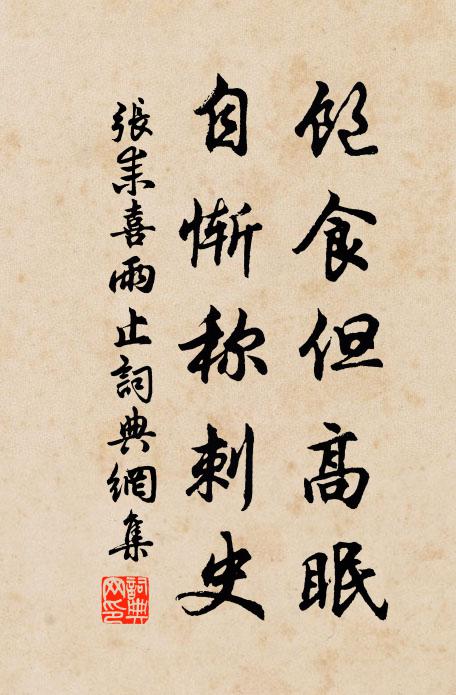 飽食但高眠
自慚称刺史
張耒喜雨止詞典網集
詞典
网印